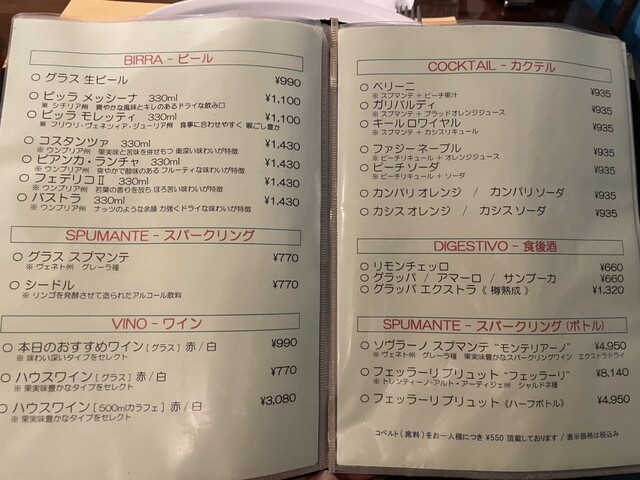 BIRRA - ビール
○ グラス 生ビール ¥990
○ ビッラ メッシーナ 330ml ¥1,100
※ シチリア州 爽やかな風味とキレのある ドライな飲み口
○ ビッラ モレッティ 330ml ¥1,100
※ フリウリ・ヴェネツィア・ジューリア州 食事に合わせやすく 喉ごし豊か
○ コスタンツァ 330ml ¥1,430
※ ウンブリア州 果実味と苦味を併せもつ 奥深い味わいが特徴
○ ビアンカ・ランチャ 330ml ¥1,430
※ ウンブリア州 爽やかで酸味のある フルーティな味わいが特徴
○ フェデリコⅡ 330ml ¥1,430
※ ウンブリア州 若葉の香りを放ち ほろ苦い味わいが特徴
○ バストラ 330ml ¥1,430
※ ウンブリア州 ナッツのような余韻 力強くドライな味わいが特徴
SPUMANTE - スパークリング
○ グラス スプマンテ ¥770
※ ヴェネト州 グレーラ種
○ シードル ¥770
※ リンゴを発酵させて造られたアルコール飲料
VINO - ワイン
○ 本日のおすすめワイン [グラス] 赤 / 白 ¥990
※ 味わい深いタイプをセレクト
○ ハウスワイン [グラス] 赤 / 白 ¥770
※ 果実味豊かなタイプをセレクト
○ ハウスワイン [500mlカラフェ] 赤 / 白 ¥3,080
※ 果実味豊かなタイプをセレクト
COCKTAIL - カクテル
○ ベリーニ ¥935
※ スプマンテ + ピーチ果汁
○ ガリバルディ ¥935
※ スプマンテ + ブラッドオレンジジュース
○ キール ロワイヤル ¥935
※ スプマンテ + カシスリキュール
○ ファジー ネーブル ¥935
※ ピーチリキュール + オレンジジュース
○ ピーチ ソーダ ¥935
※ ピーチリキュール + ソーダ
○ カンパリ オレンジ / カンパリ ソーダ ¥935
○ カシス オレンジ / カシス ソーダ ¥935
DIGESTIVO - 食後酒
○ リモンチェッロ ¥660
○ グラッパ / アマーロ / サンブーカ ¥660
○ グラッパ エクストラ 《 樽熟成 》 ¥1,320
SPUMANTE - スパークリング (ボトル)
○ ソヴラーノ スプマンテ “モンテリアーノ” ¥4,950
※ ヴェネト州 グレーラ種 果実味豊かなスパークリングワイン エクストラドライ
○ フェッラーリ ブリュット “フェッラーリ” ¥8,140
※ トレンティーノ・アルト・アーディジェ州 シャルドネ種
○ フェッラーリ ブリュット 《ハーフボトル》 ¥4,950
コペルト ( 席料 ) をお一人様につき ¥550 頂戴しております / 表示価格は税込み